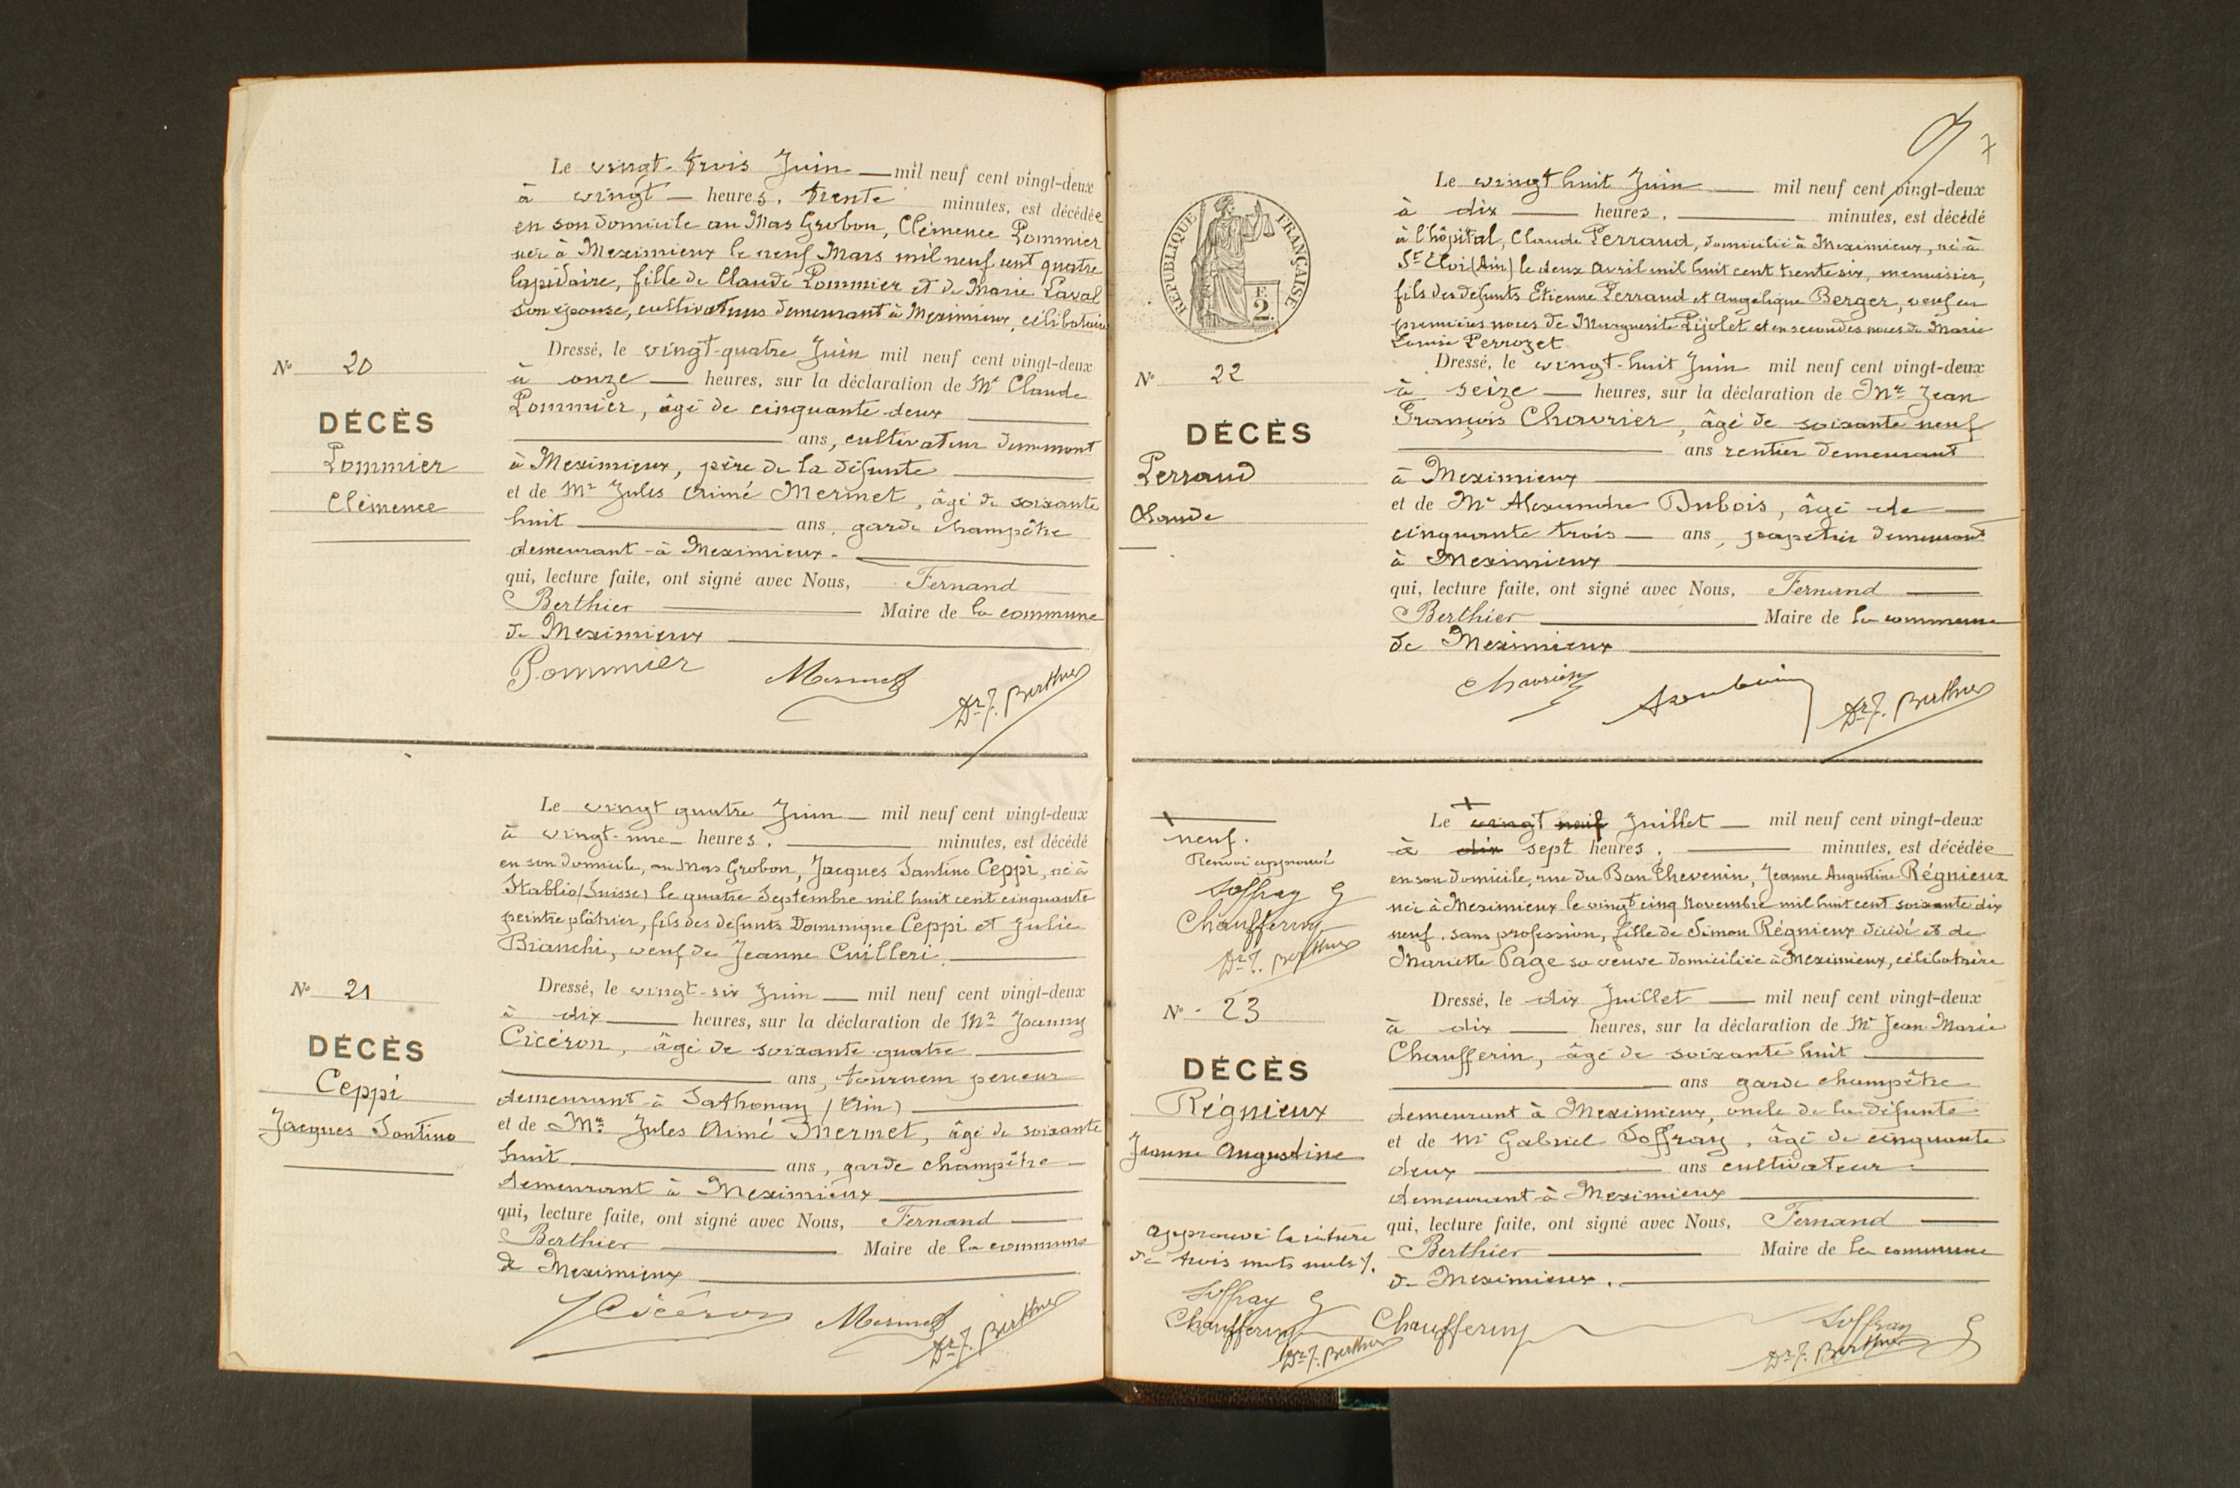 Le vingt-trois Juin — mil neuf cent vingt-deux
à vingt — heures, trente minutes, est décédée
en son domicile au Mas Grobon, Clémence Pommier
née à Meximieux le neuf Mars mil neuf cent quatre
lapidaire, fille de Claude Pommier et de Marie Laval
son épouse, cultivateurs demeurant à Meximieux, célibataire
Dressé, le vingt-quatre Juin mil neuf cent vingt-deux
à onze — heures, sur la déclaration de Mr Claude
Pommier, âgé de cinquante-deux
ans, cultivateur demeurant
à Meximieux, père de la défunte
et de Mr Jules Aimé Mermet, âgé de soixante
huit — ans, garde champêtre
demeurant à Meximieux.
qui, lecture faite, ont signé avec Nous, Fernand
Berthier — Maire de la commune
de Meximieux
Pommier Mermet Dr F. Berthier
No 20
DÉCÈS
Pommier
Clémence
Le vingt quatre Juin — mil neuf cent vingt-deux
à vingt-une — heures, — minutes, est décédé
en son domicile, au Mas Grobon, Jacques Santino Ceppi, né à
Stablio (Suisse) le quatre Septembre mil huit cent cinquante
peintre plâtrier, fils des défunts Dominique Ceppi et Julie
Bianchi, veuf de Jeanne Cuilleri.
Dressé, le vingt-six Juin — mil neuf cent vingt-deux
à dix — heures, sur la déclaration de Mr Joanny
Cicéron, âgé de soixante-quatre
ans, tourneur perceur
demeurant à Sathonay (Ain)
et de Mr Jules Aimé Mermet, âgé de soixante
huit — ans, garde champêtre
demeurant à Meximieux
qui, lecture faite, ont signé avec Nous, Fernand
Berthier — Maire de la commune
de Meximieux
J Cicéron Mermet Dr F. Berthier
No 21
DÉCÈS
Ceppi
Jacques Santino
7
RÉPUBLIQUE FRANÇAISE
2 F.
Le vingt huit Juin — mil neuf cent vingt-deux
à dix — heures, — minutes, est décédé
à l'hôpital, Claude Perraud, domicilié à Meximieux, né à
St Eloi (Ain) le deux avril mil huit cent trente six, menuisier,
fils des défunts Etienne Perraud et Angélique Berger, veuf en
premières noces de Marguerite Pijolet et en secondes noces de Marie
Louise Perrozet
Dressé, le vingt-huit Juin mil neuf cent vingt-deux
à seize — heures, sur la déclaration de Mr Jean
François Chavrier, âgé de soixante neuf
ans rentier demeurant
à Meximieux
et de Mr Alexandre Dubois, âgé de
cinquante trois — ans, papetier demeurant
à Meximieux
qui, lecture faite, ont signé avec Nous, Fernand
Berthier — Maire de la commune
de Meximieux
Chavrier Dr F. Berthier
No 22
DÉCÈS
Perraud
Claude
Le vingt neuf Juillet — mil neuf cent vingt-deux
à dix sept heures, — minutes, est décédée
en son domicile, rue du Bon Thevenin, Jeanne Augustine Régnieux
née à Meximieux le vingt cinq Novembre mil huit cent soixante dix
neuf, sans profession, fille de Simon Régnieux décédé et de
Mariette Page sa veuve domiciliée à Meximieux, célibataire
Dressé, le dix Juillet — mil neuf cent vingt-deux
à dix — heures, sur la déclaration de Mr Jean Marie
Chaufferin, âgé de soixante huit
ans garde champêtre
demeurant à Meximieux, oncle de la défunte
et de Mr Gabriel Soffray, âgé de cinquante
deux — ans cultivateur
demeurant à Meximieux
qui, lecture faite, ont signé avec Nous, Fernand
Berthier — Maire de la commune
de Meximieux.
Chaufferin Soffray G Dr F. Berthier
neuf.
Renvoi approuvé
Soffray G
Chaufferin
Dr F. Berthier
No 23
DÉCÈS
Régnieux
Jeanne Augustine
Approuvé la rature
de trois mots nuls
Soffray G
Chaufferin
Dr F. Berthier